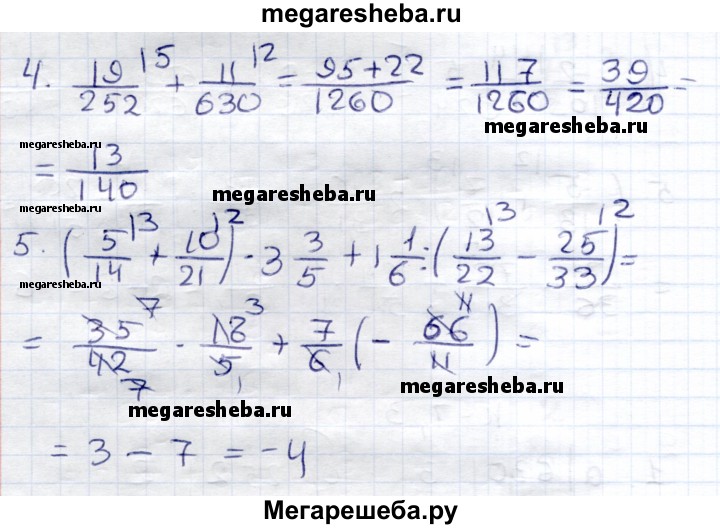 megaresheba.ru
4. 19/252 |5 + 11/630 |2 = 95+22/1260 = 117/1260 = 39/420 =
megaresheba.ru
megaresheba.ru
= 13/140
megaresheba.ru
megaresheba.ru
5. (5/14 |3 + 10/21 |2) · 3 3/5 + 1 1/6 : (13/22 |3 − 25/33 |2) =
= 35 7/42 7 · 18 3/5 1 + 7/6 1 (− 66 11/11) =
megaresheba.ru
megaresheba.ru
= 3 − 7 = −4
Мегарешеба.ру